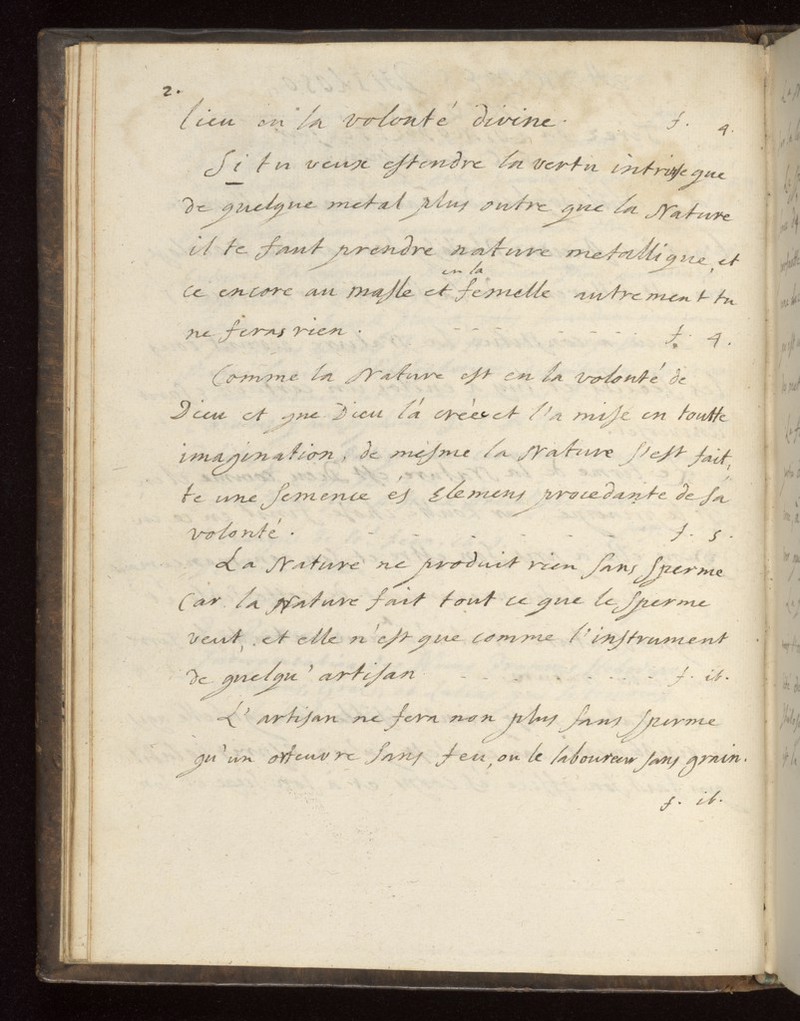 2.
lieu où la volonté divine. f. 4.
Si tu veux estendre la vertu intrinseque
de quelque metal plus outre que la Nature
il te faut prendre nature metallique, et
ce encore au masle et en la femelle autrement tu
ne feras rien. - - - - - - - f. 4.
Comme la Nature est en la volonté de
Dieu et que Dieu l'a créée et l'a mise en toutte
imagination, de mesme la Nature s'est fait,
te une semence és Elemens procedante de sa
volonté. - - - - - - - f. 5.
La Nature ne produit rien sans sperme
Car la Nature fait tout ce que le sperme
veut, et elle n'est que comme l'instrument
de quelqu'artisan - - - - - - - f. ib.
L'artisan ne fera non plus sans sperme
qu'un orfeuvre sans feu, ou le laboureur sans grain.
f. ib.